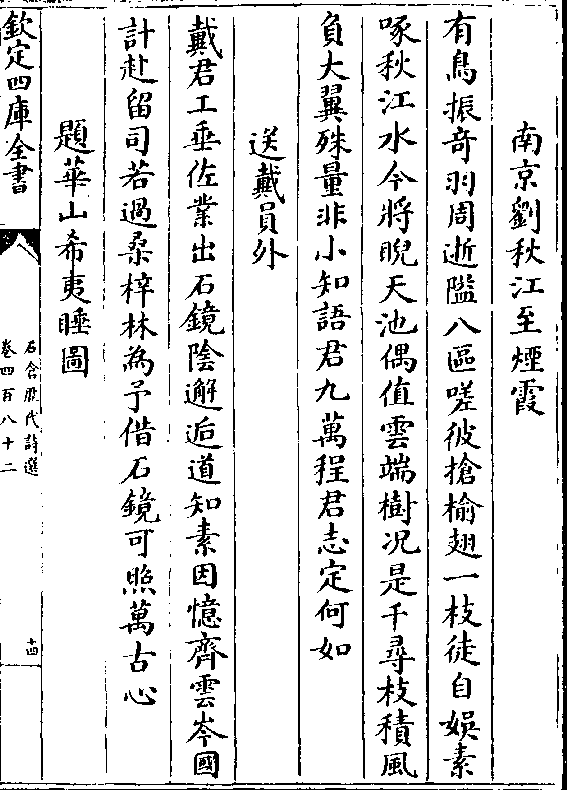 南京劉秋江至煙霞
有鳥振奇羽周逝隘八區嗟彼搶榆翅一枝徒自娛素
啄秋江水今將睨天池偶值雲端樹况是千尋枝積風
負大翼殊量非小知語君九萬程君志定何如
送戴員外
戴君工垂佐業出石鏡陰邂逅道知素因憶齊雲岑國
計赴留司若過桑梓林為予借石鏡可照萬古心
題華山希夷睡圖
欽定四庫全書
石倉歷代詩選
卷四百八十二
十四